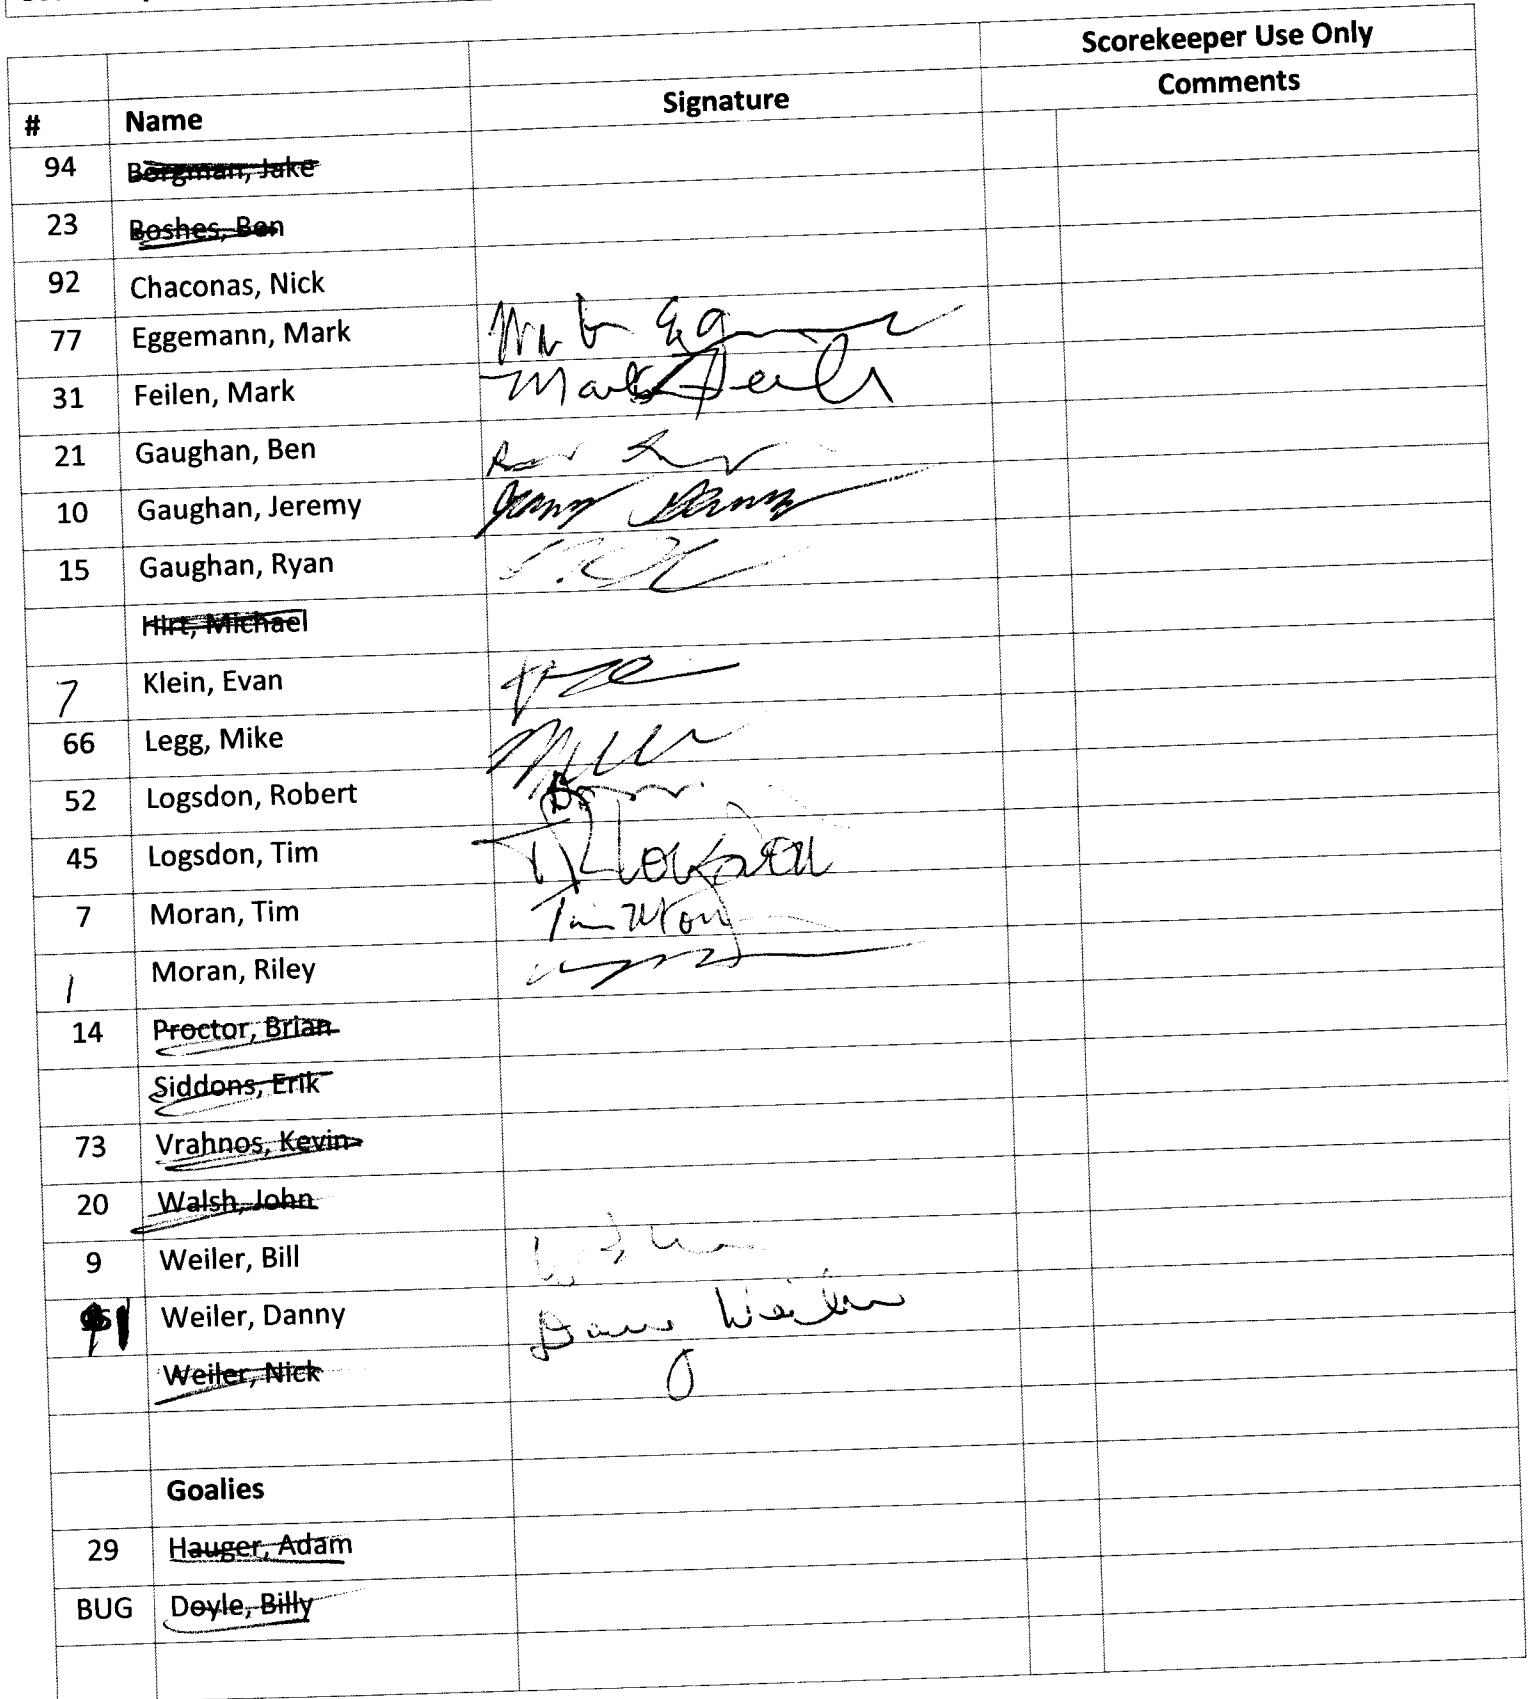 Scorekeeper Use Only
# Name Signature Comments
94 Borgman, Jake
23 Boshes, Ben
92 Chaconas, Nick
77 Eggemann, Mark
31 Feilen, Mark Mark
21 Gaughan, Ben
10 Gaughan, Jeremy
15 Gaughan, Ryan
Hirt, Michael
7 Klein, Evan
66 Legg, Mike
52 Logsdon, Robert
45 Logsdon, Tim
7 Moran, Tim Tim
1 Moran, Riley
14 Proctor, Brian
Siddons, Erik
73 Vrahnos, Kevin
20 Walsh, John
9 Weiler, Bill
Weiler, Danny Weiler
Weiler, Nick
Goalies
29 Hauger, Adam
BUG Doyle, Billy